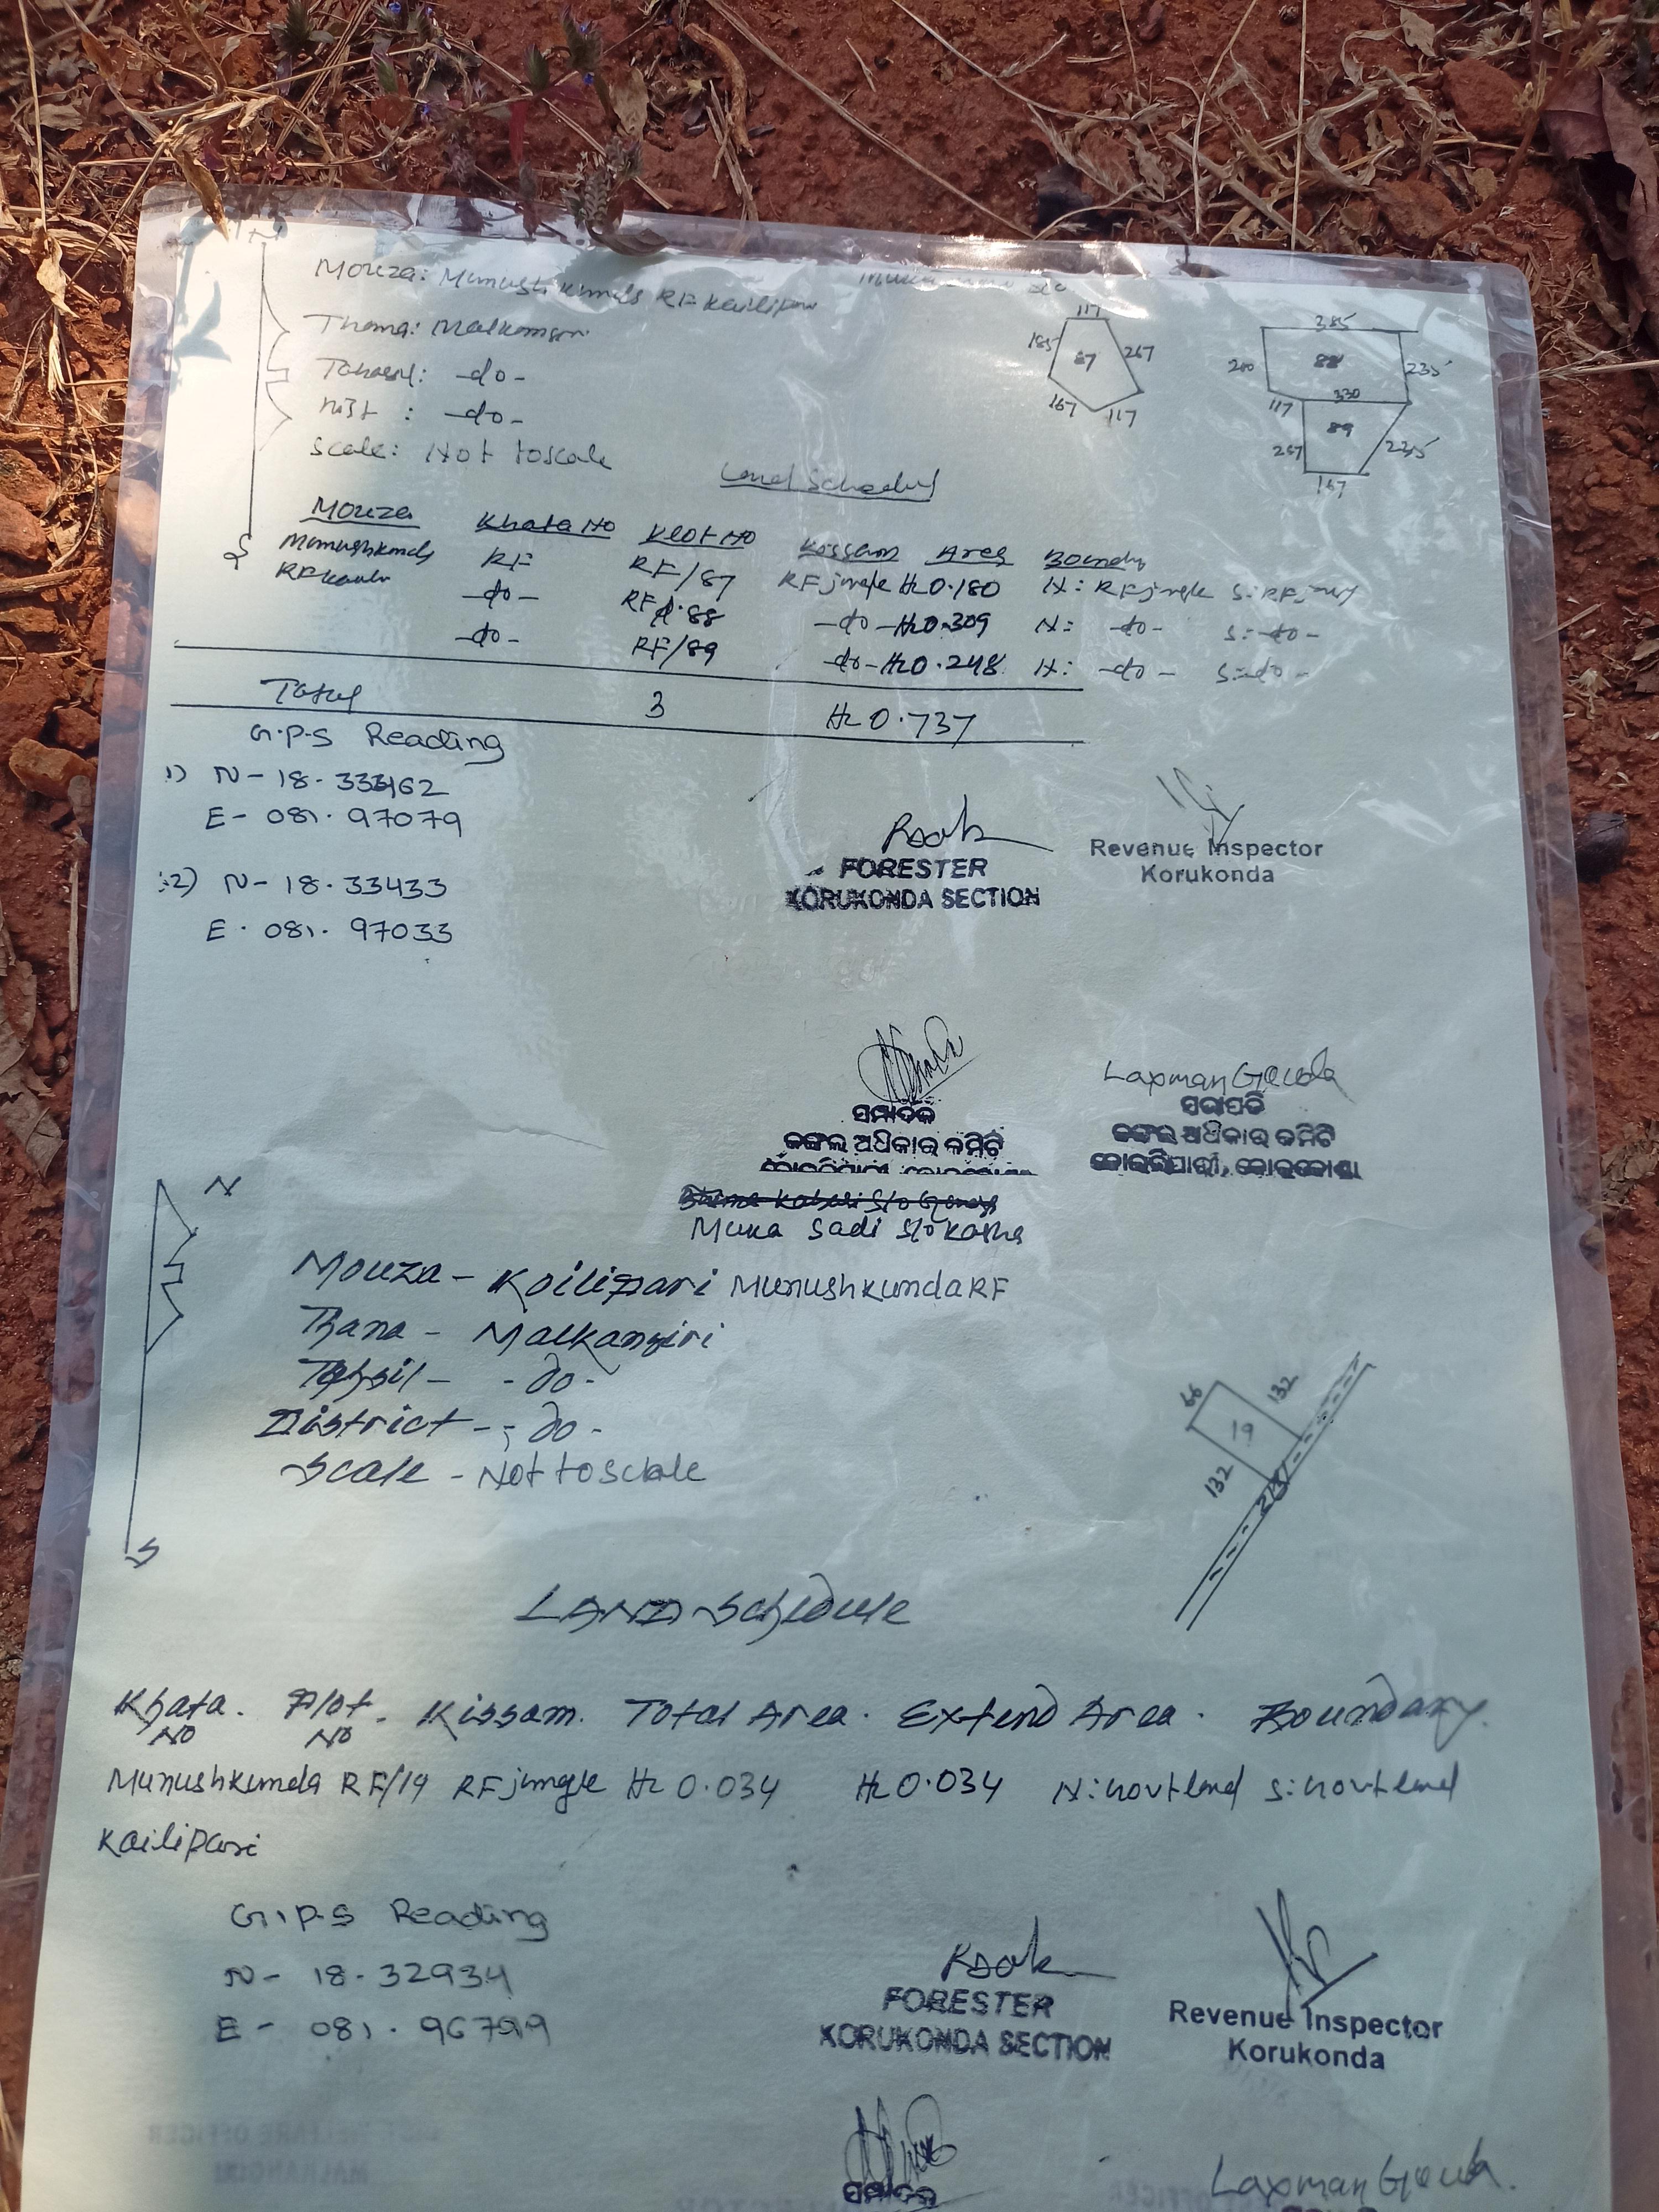 N
Mouza: RF
117
185
87
267
167
117
385
200
88
235
117
330
89
267
235
167
Thana:
Tahasil: -do-
Dist : -do-
Scale: Not toscale
Land Schedul
Mouza Khata No Plot No Kissam Area
RF RF/87 RF jungle H 0.180 N: RF jungle S:
-do- RF 88 -do- H 0.309 N: -do- S: -do-
-do- RF/89 -do- H 0.248 N: -do- S: -do-
S
Total 3 H 0.737
G.P.S Reading
1) N - 18. 
E - 081. 97079
2) N - 18. 33433
E. 081. 97033
FORESTER
KORUKONDA SECTION
Revenue Inspector
Korukonda
Laxman Gouda
ସମ୍ପାଦକ
ଜଙ୍ଗଲ ଅଧିକାର କମିଟି
ସଭାପତି
ଜଙ୍ଗଲ ଅଧିକାର କମିଟି
କୋଇଲିପାରୀ, କୋରୁକୋଣ୍ଡା
Muka Sadi S/o
N
Mouza - Koilipari Munushkunda RF
Thana - Malkangiri
Tahsil - - Do -
District - - Do -
Scale - Not to scale
66
132
19
132
S
LAND Schedule
Khata No. Plot No. Kissam. Total Area. Extend Area. Boundary.
Munushkunda RF/19 RF jungle H 0.034 H 0.034 N: Govt land S: Govt land
Kailipari
G.P.S Reading
N - 18. 32934
E - 081. 
FORESTER
KORUKONDA SECTION
Revenue Inspector
Korukonda
ସମ୍ପାଦକ
Laxman Gouda.